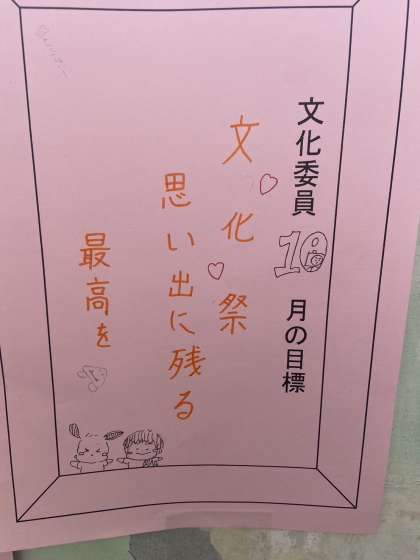 文化委員 10 月の目標
文化祭
思い出に残る
最高を